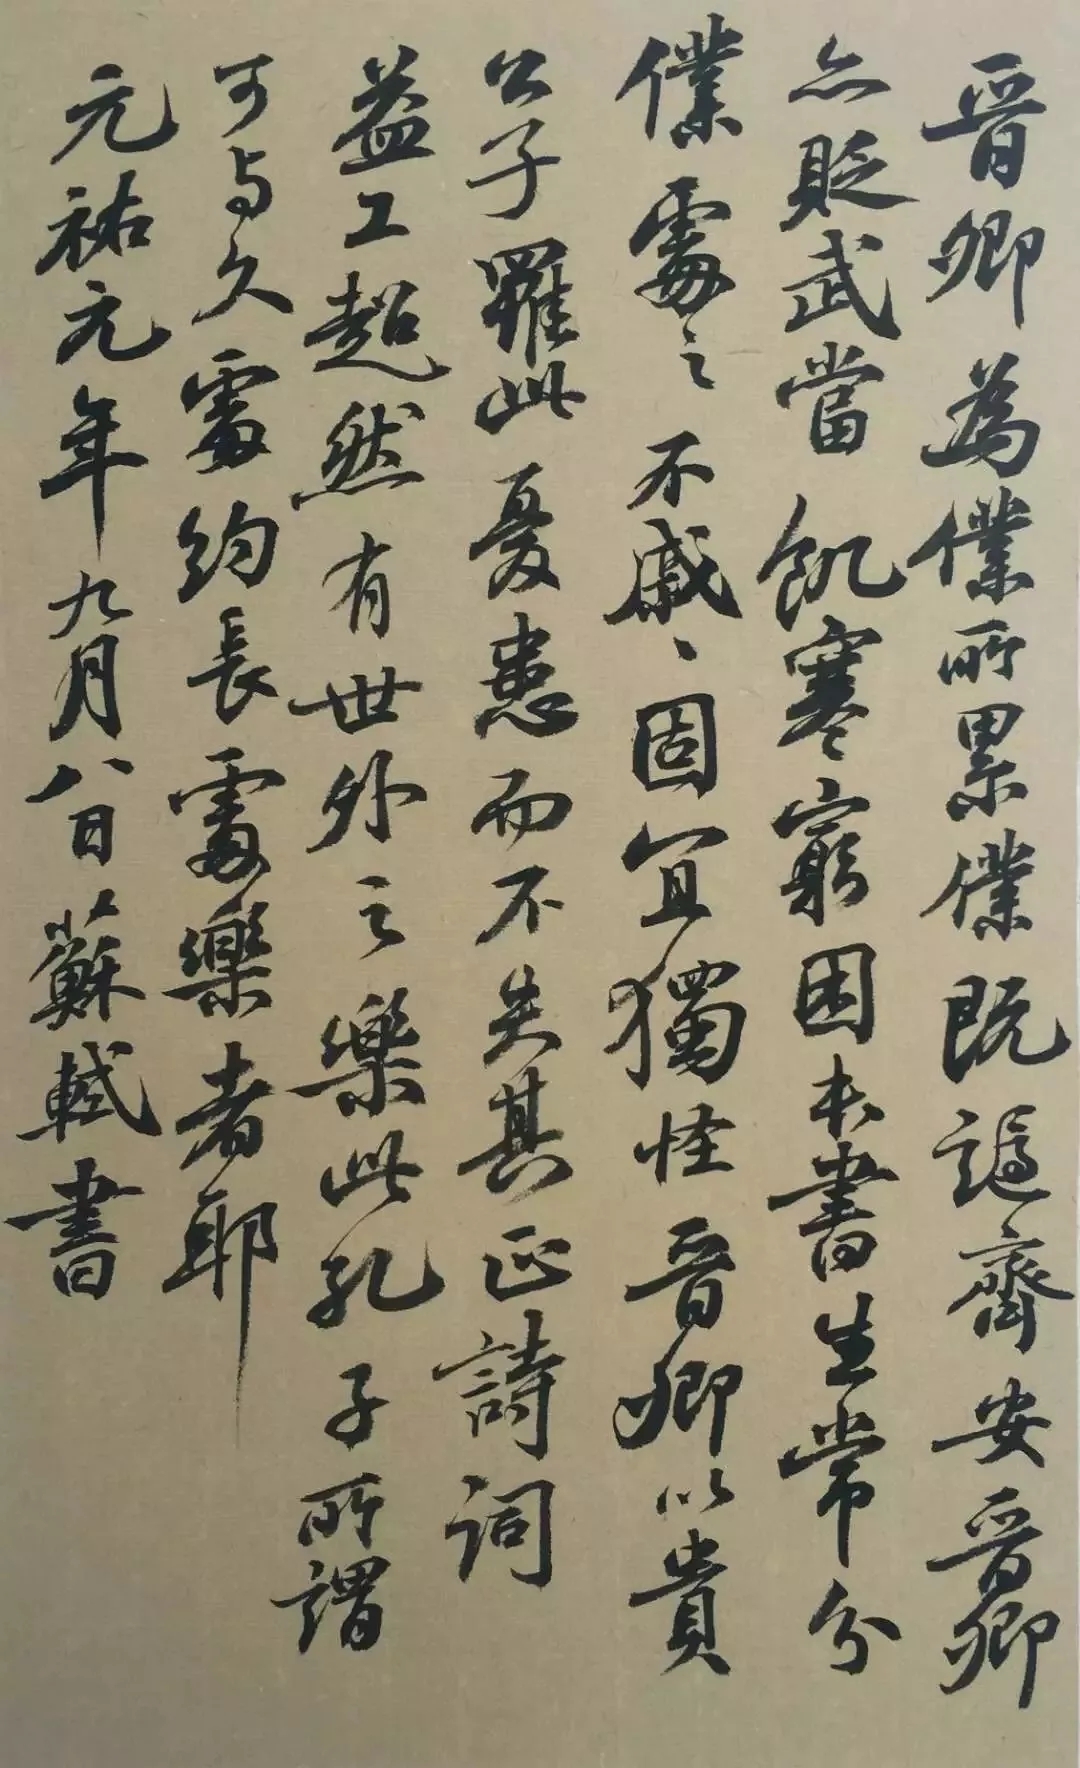 晉卿為僕所累僕既謫齊安晉卿
亦貶武當飢寒窮困本書生常分
僕處之不戚〻固宜獨怪晉卿以貴
公子罹此憂患而不失其正詩詞
益工超然有世外之樂此孔子所謂
可與久處約長處樂者耶
元祐元年九月八日蘇軾書